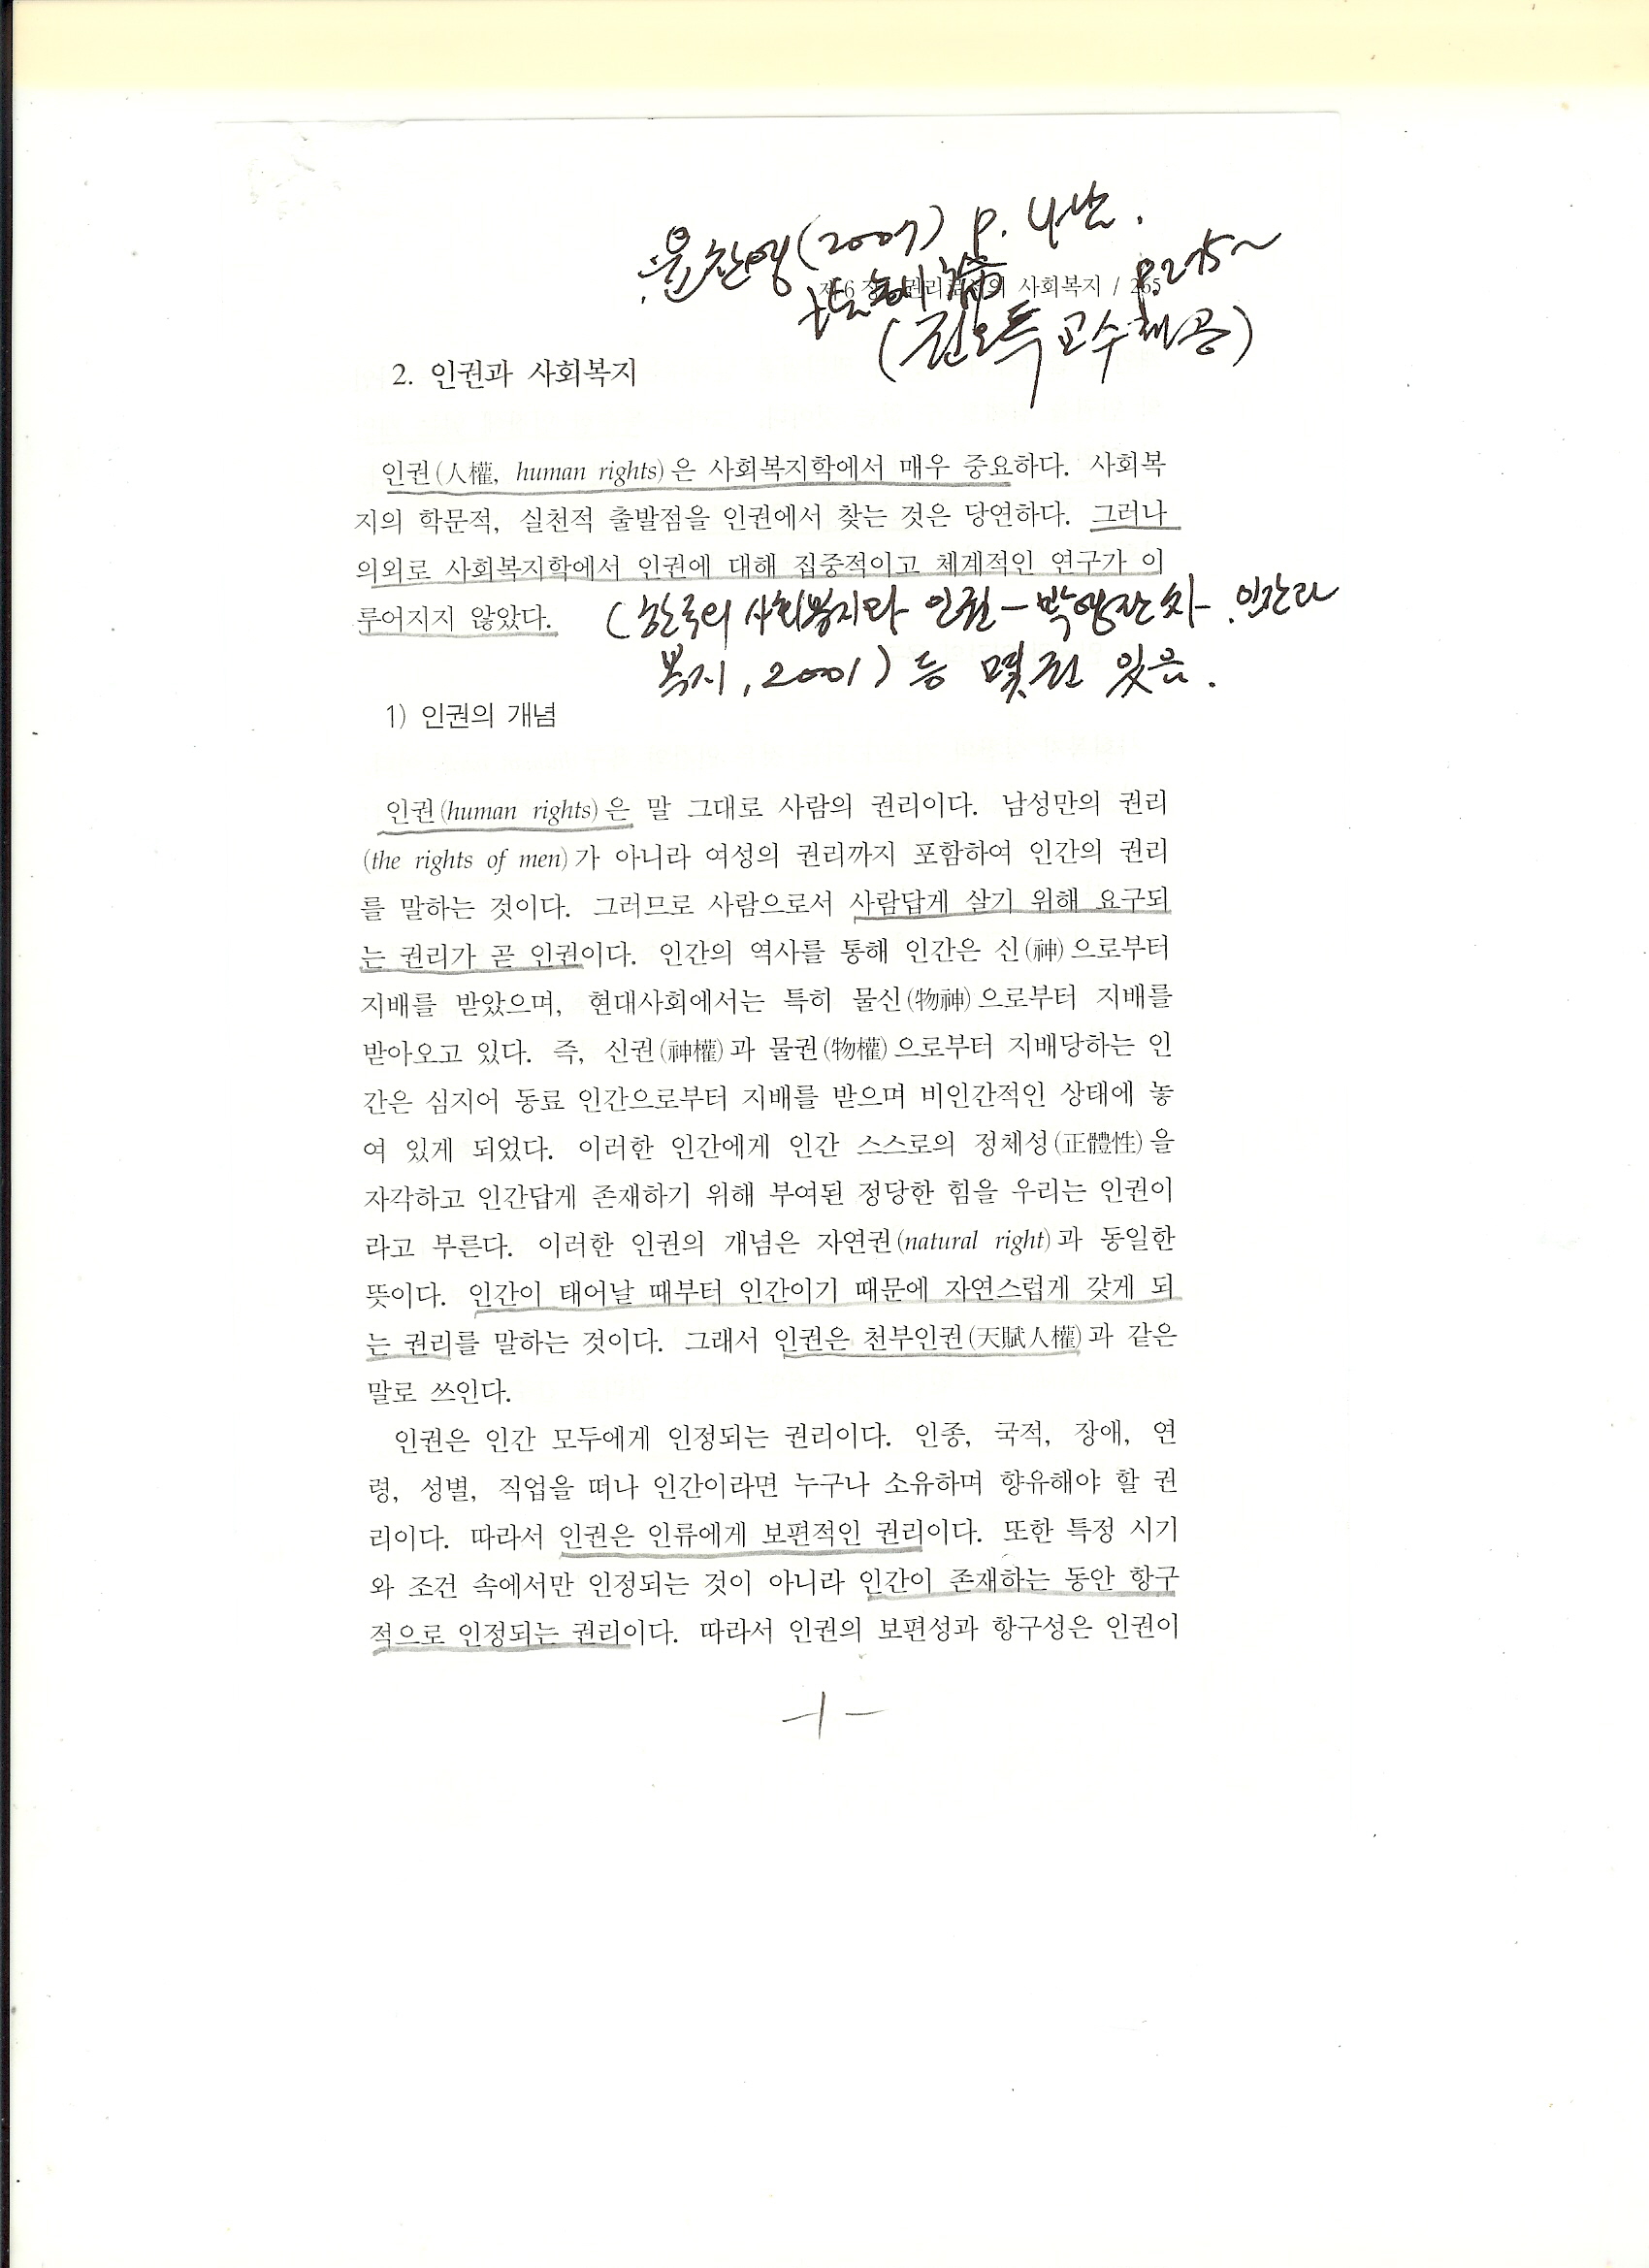 윤찬영(2007) p.
p.275~
제6장 권리로서의 사회복지 / 265
(권오득 교수 제공)
2. 인권과 사회복지
인권(人權, human rights)은 사회복지학에서 매우 중요하다. 사회복
지의 학문적, 실천적 출발점을 인권에서 찾는 것은 당연하다. 그러나
의외로 사회복지학에서 인권에 대해 집중적이고 체계적인 연구가 이
루어지지 않았다.
(한국의 사회복지와 인권 - 박영란 . 인간과
복지, 2001) 등 몇권 있음.
1) 인권의 개념
인권(human rights)은 말 그대로 사람의 권리이다. 남성만의 권리
(the rights of men)가 아니라 여성의 권리까지 포함하여 인간의 권리
를 말하는 것이다. 그러므로 사람으로서 사람답게 살기 위해 요구되
는 권리가 곧 인권이다. 인간의 역사를 통해 인간은 신(神)으로부터
지배를 받았으며, 현대사회에서는 특히 물신(物神)으로부터 지배를
받아오고 있다. 즉, 신권(神權)과 물권(物權)으로부터 지배당하는 인
간은 심지어 동료 인간으로부터 지배를 받으며 비인간적인 상태에 놓
여 있게 되었다. 이러한 인간에게 인간 스스로의 정체성(正體性)을
자각하고 인간답게 존재하기 위해 부여된 정당한 힘을 우리는 인권이
라고 부른다. 이러한 인권의 개념은 자연권(natural right)과 동일한
뜻이다. 인간이 태어날 때부터 인간이기 때문에 자연스럽게 갖게 되
는 권리를 말하는 것이다. 그래서 인권은 천부인권(天賦人權)과 같은
말로 쓰인다.
인권은 인간 모두에게 인정되는 권리이다. 인종, 국적, 장애, 연
령, 성별, 직업을 떠나 인간이라면 누구나 소유하며 향유해야 할 권
리이다. 따라서 인권은 인류에게 보편적인 권리이다. 또한 특정 시기
와 조건 속에서만 인정되는 것이 아니라 인간이 존재하는 동안 항구
적으로 인정되는 권리이다. 따라서 인권의 보편성과 항구성은 인권이
-1-